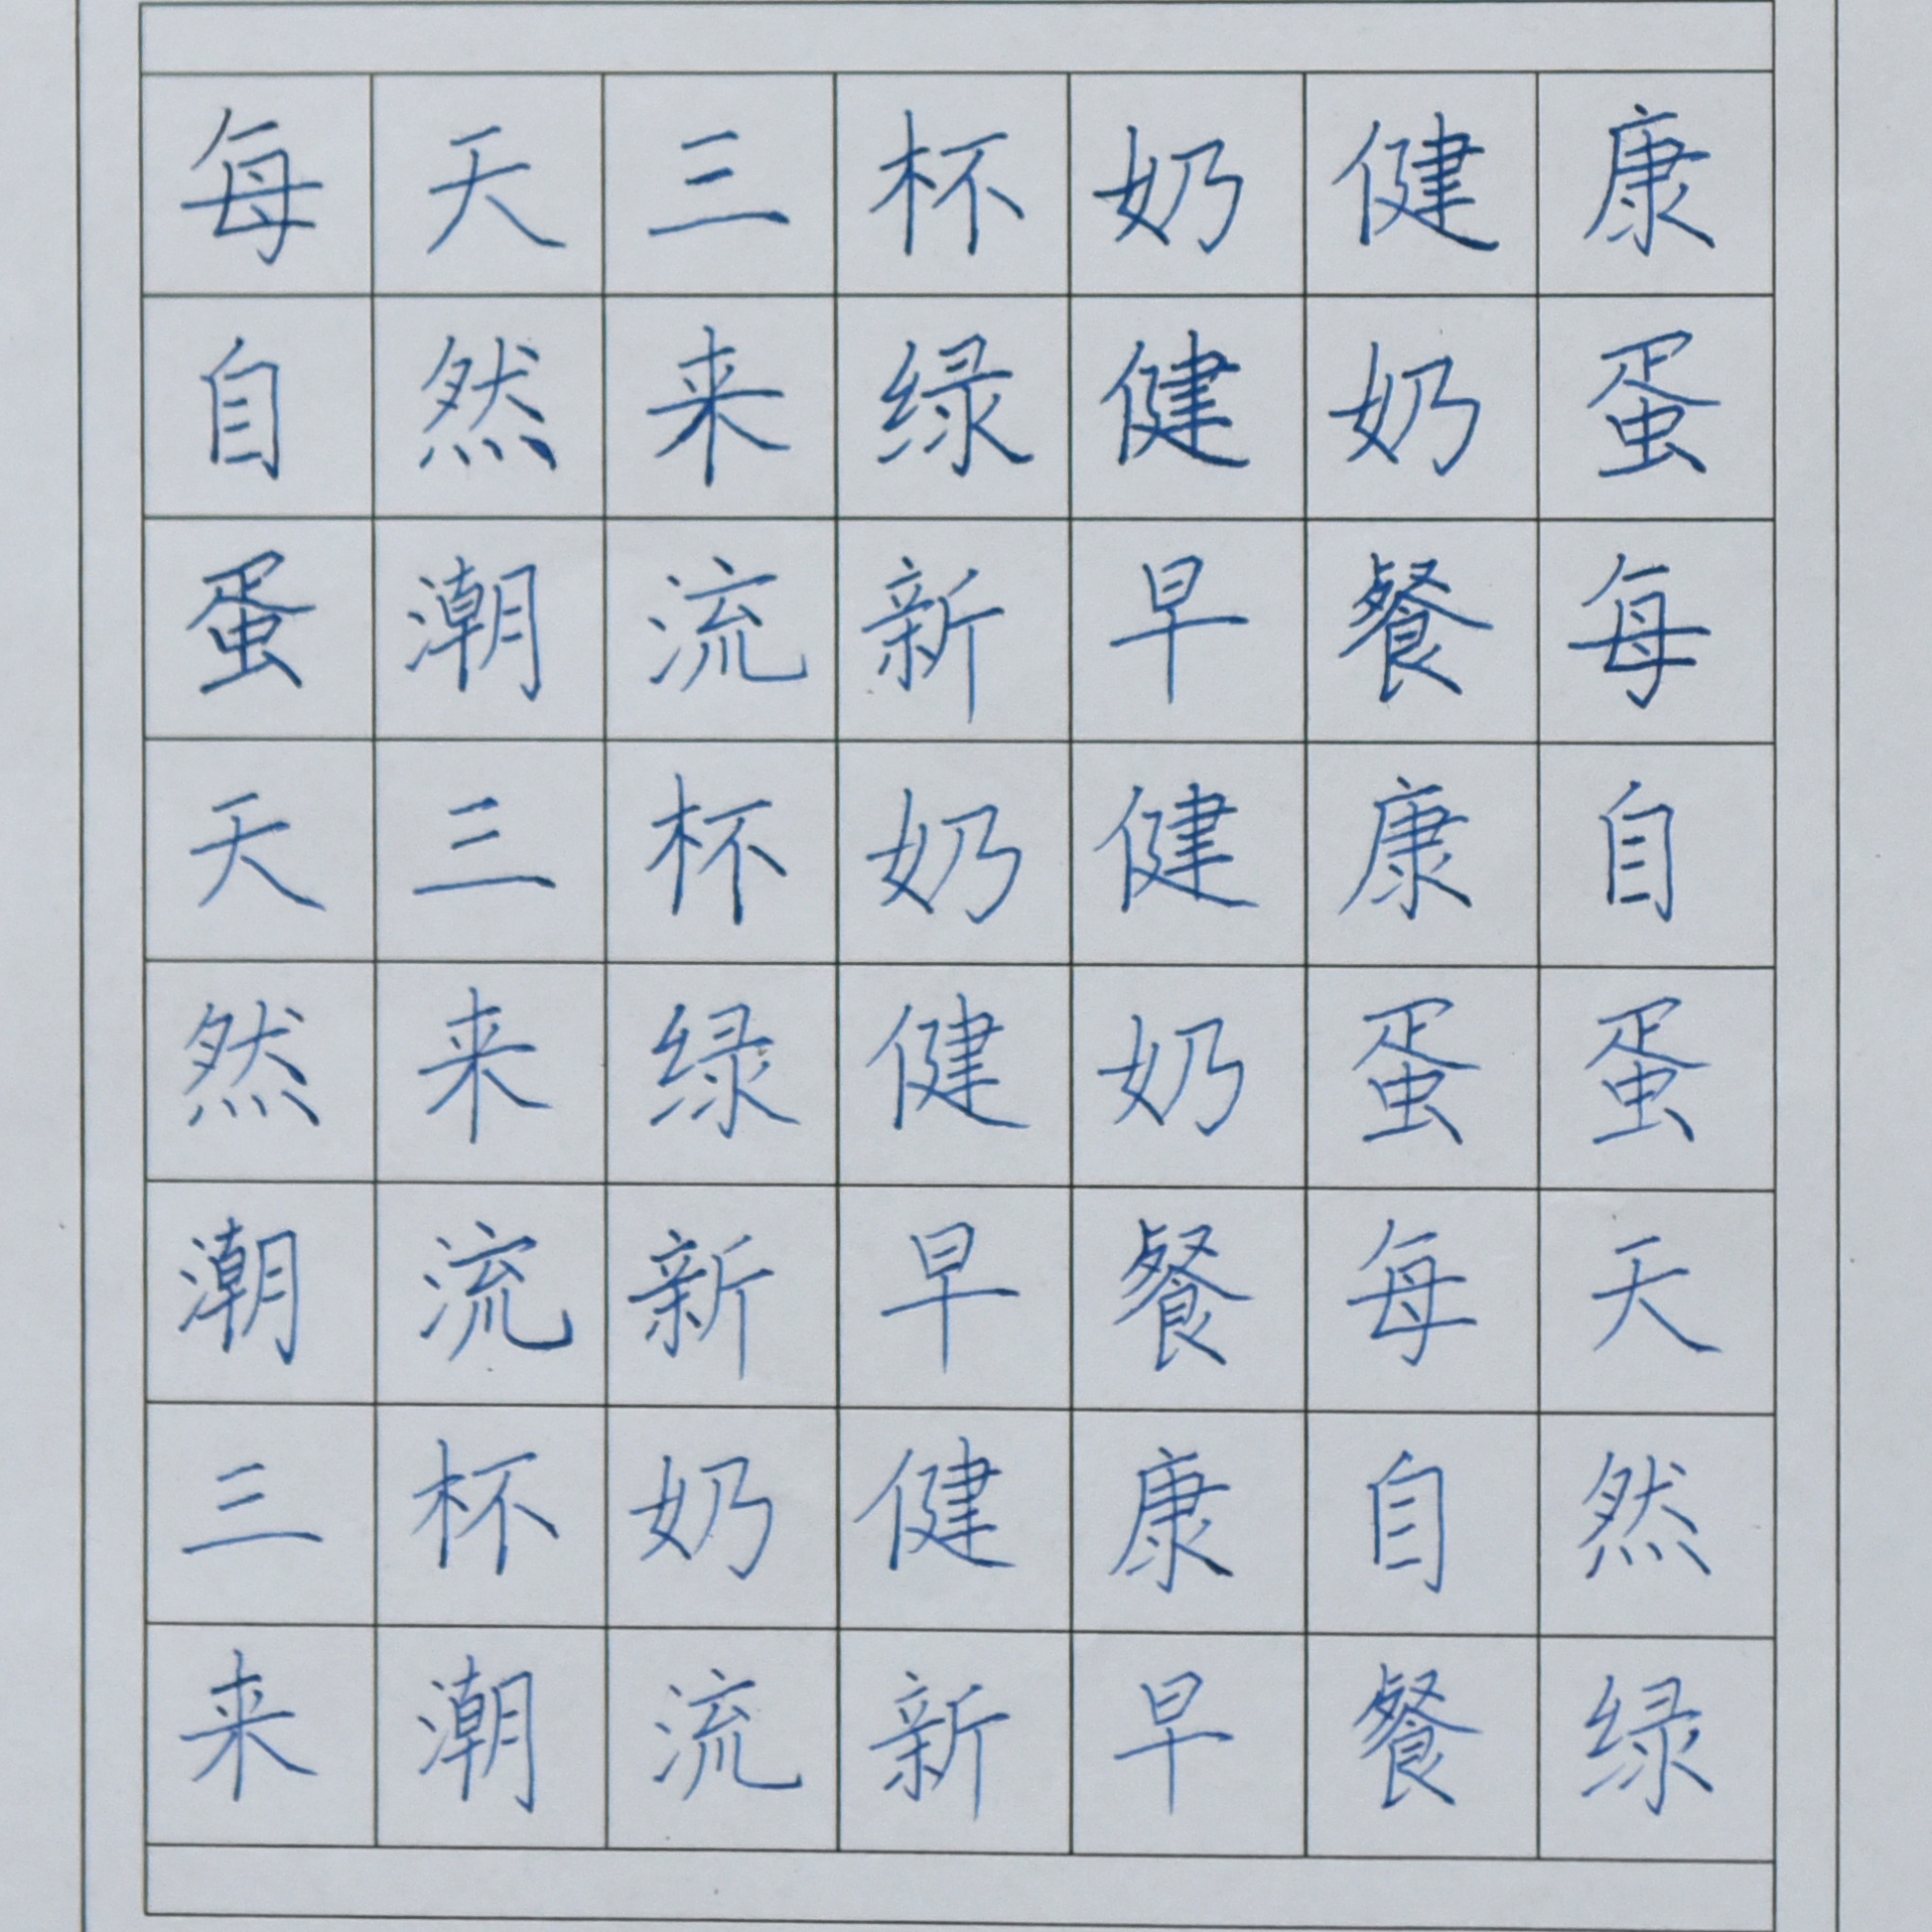 每天三杯奶健康
自然来绿健奶蛋
蛋潮流新早餐每
天三杯奶健康自
然来绿健奶蛋蛋
潮流新早餐每天
三杯奶健康自然
来潮流新早餐绿